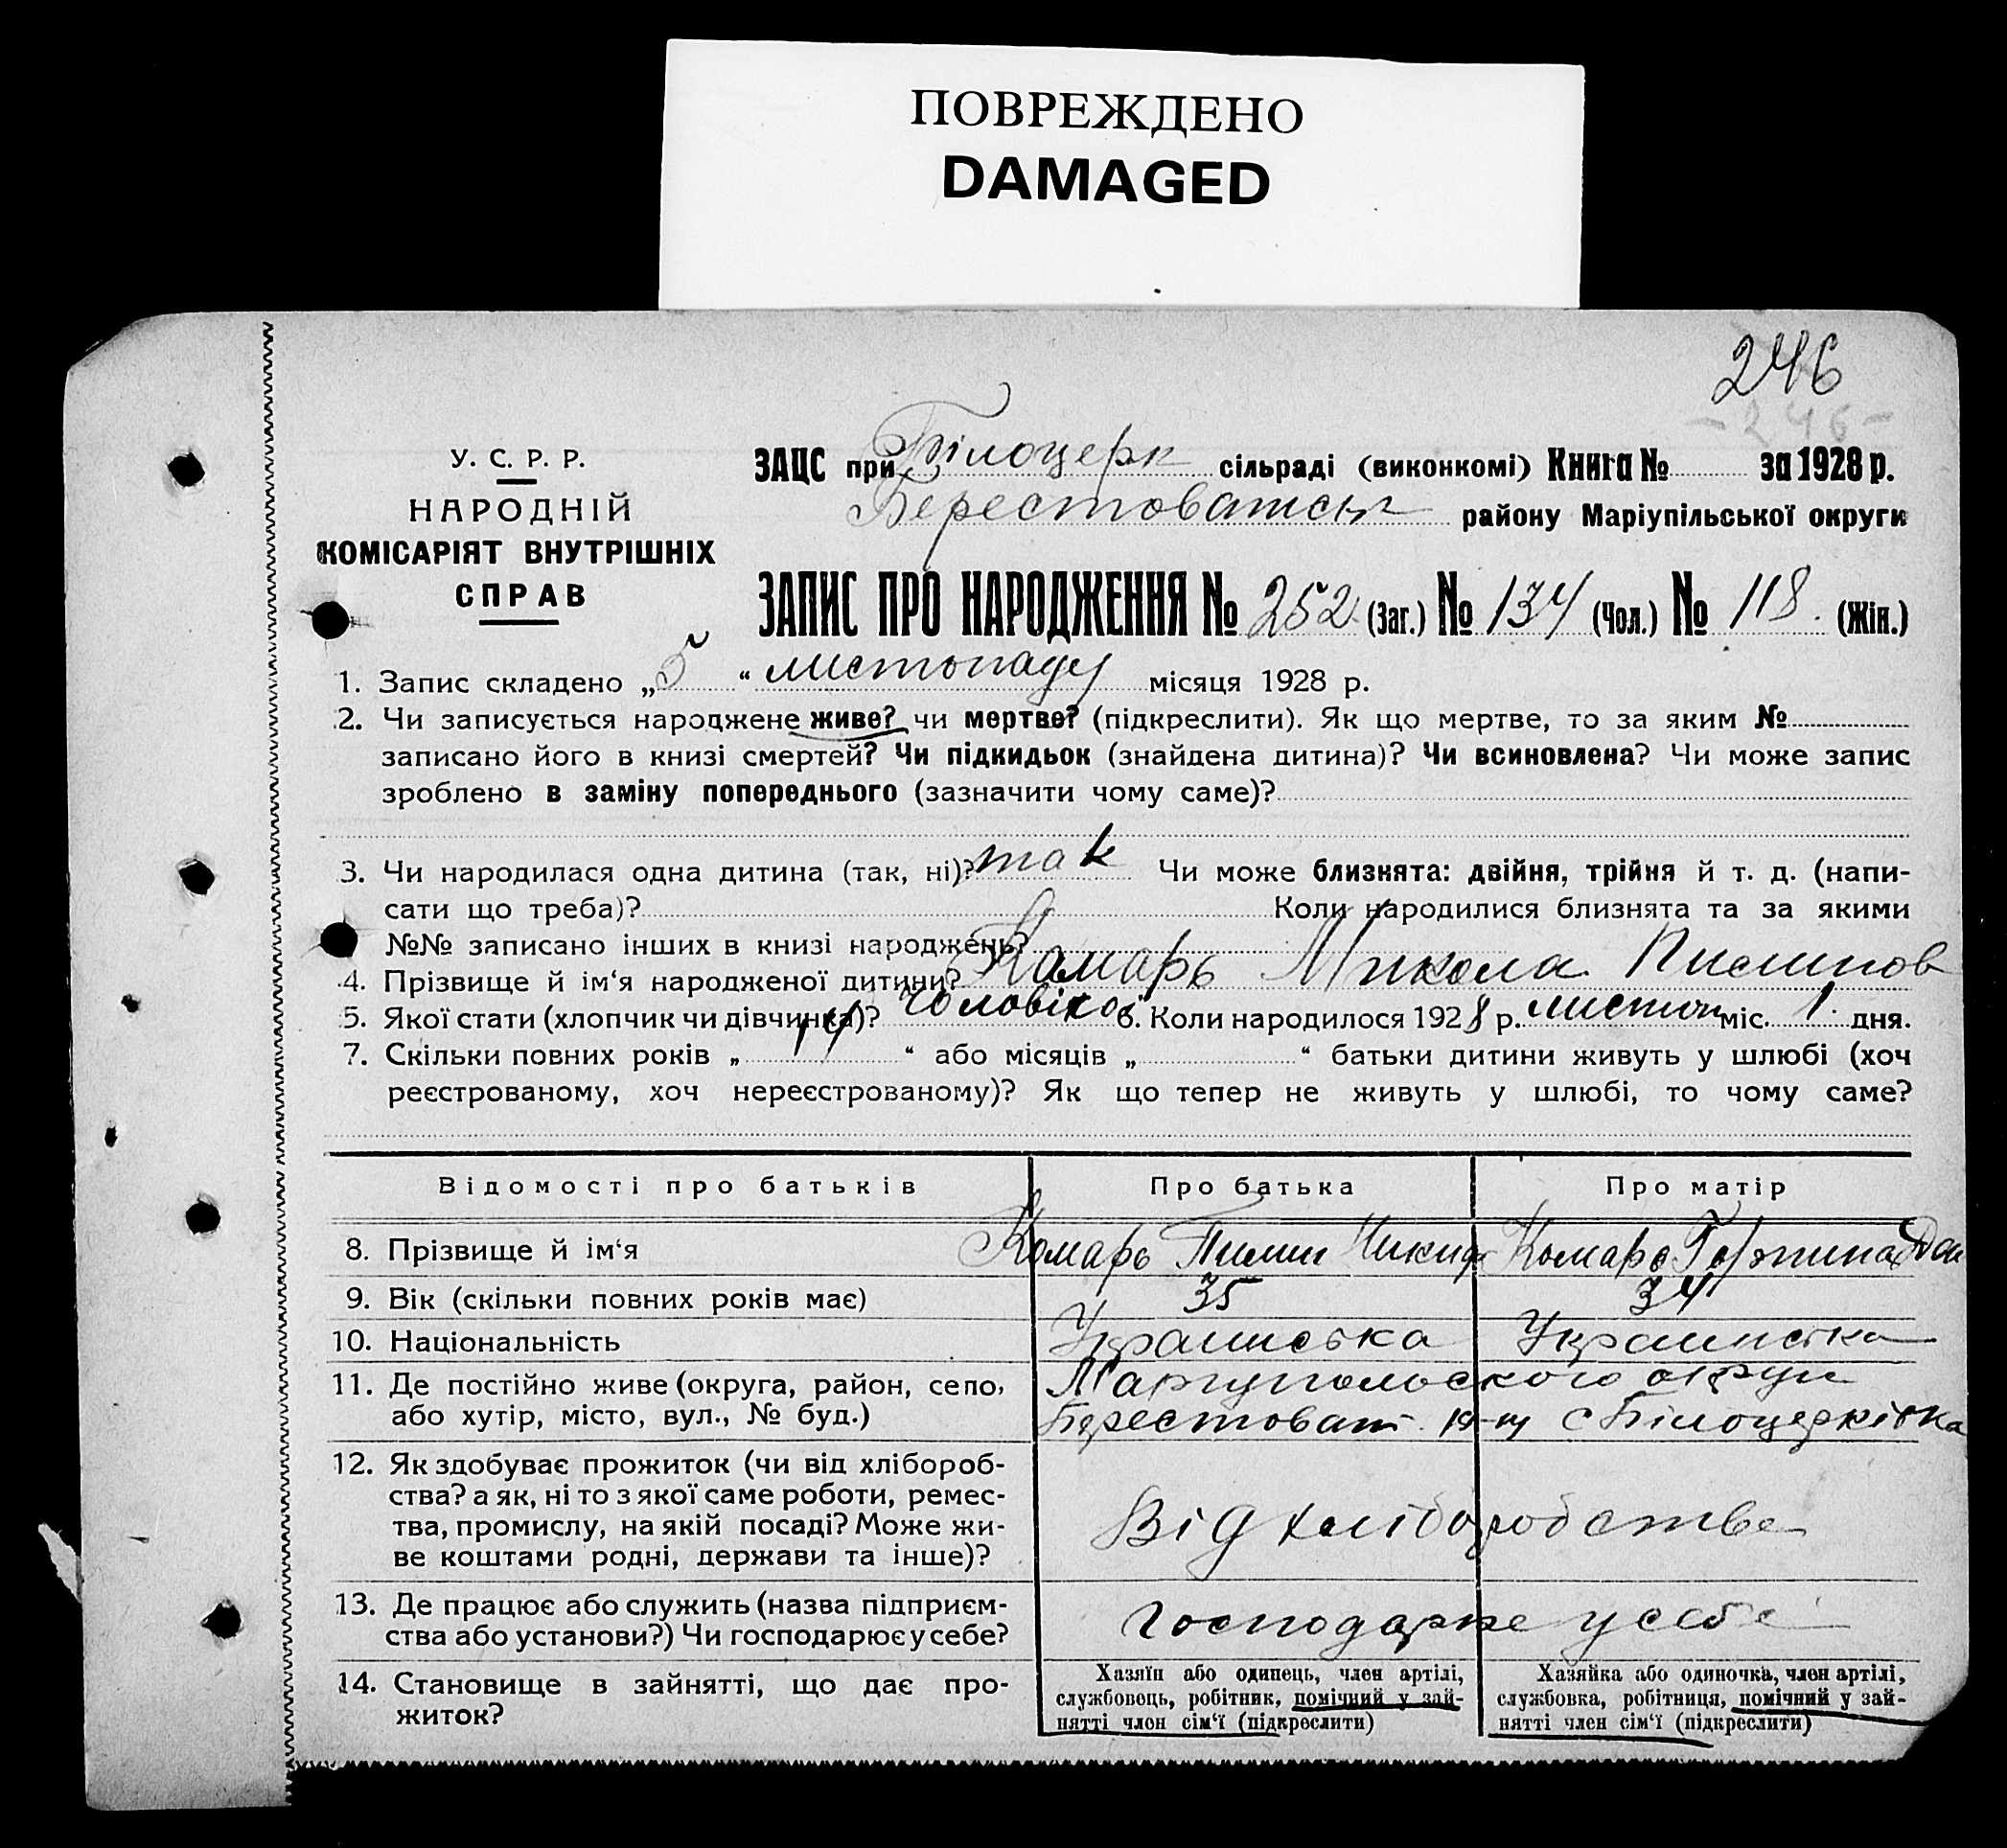 ПОВРЕЖДЕНО
DAMAGED
246
-246-
У. С. Р. Р.
НАРОДНІЙ
КОМІСАРІЯТ ВНУТРІШНІХ
СПРАВ
ЗАЦС при Білоцерк сільраді (виконкомі) Книга № за 1928 р.
Берестоватськ району Маріупільської округи
ЗАПИС ПРО НАРОДЖЕННЯ № 252 (Заг.) № 134 (Чол.) № 118. (Жін.)
1. Запис складено „5“ листопаду місяця 1928 р.
2. Чи записується народжене живе? чи мертве? (підкреслити). Як що мертве, то за яким №
записано його в книзі смертей? Чи підкидьок (знайдена дитина)? Чи всиновлена? Чи може запис
зроблено в заміну попереднього (зазначити чому саме)?
3. Чи народилася одна дитина (так, ні)? так Чи може близнята: двійня, трійня й т. д. (напи-
сати що треба)? Коли народилися близнята та за якими
№№ записано інших в книзі народжень?
4. Прізвище й ім‘я народженої дитини? Комарь Микола Пиминов
5. Якої стати (хлопчик чи дівчинка)? чоловікої 6. Коли народилося 1928 р. листоп міс. 1. дня.
7. Скільки повних років „14“ або місяців „ “ батьки дитини живуть у шлюбі (хоч
реєстрованому, хоч нереєстрованому)? Як що тепер не живуть у шлюбі, то чому саме?
Відомості про батьків Про батька Про матір
8. Прізвище й ім‘я Комарь Пимин Никиф Комарь Горпина
9. Вік (скільки повних років має) 35 34
10. Національність Украинська Украинська
11. Де постійно живе (округа, район, село, Маріупольского округи
або хутір, місто, вул., № буд.) Берестоват. р-ну с Білоцерківка
12. Як здобуває прожиток (чи від хлібороб-
ства? а як, ні то з якої саме роботи, ремес-
тва, промислу, на якій посаді? Може жи- Від хліборобства
ве коштами родні, держави та інше)?
13. Де працює або служить (назва підприєм- господарює у себе
ства або установи?) Чи господарює у себе?
14. Становище в зайнятті, що дає про-
житок?
Хазяїн або одинець, член артілі,
службовець, робітник, помічний у зай-
нятті член сім‘ї (підкреслити)
Хазяйка або одиночка, член артілі,
службовка, робітниця, помічний у зай-
нятті член сім‘ї (підкреслити)